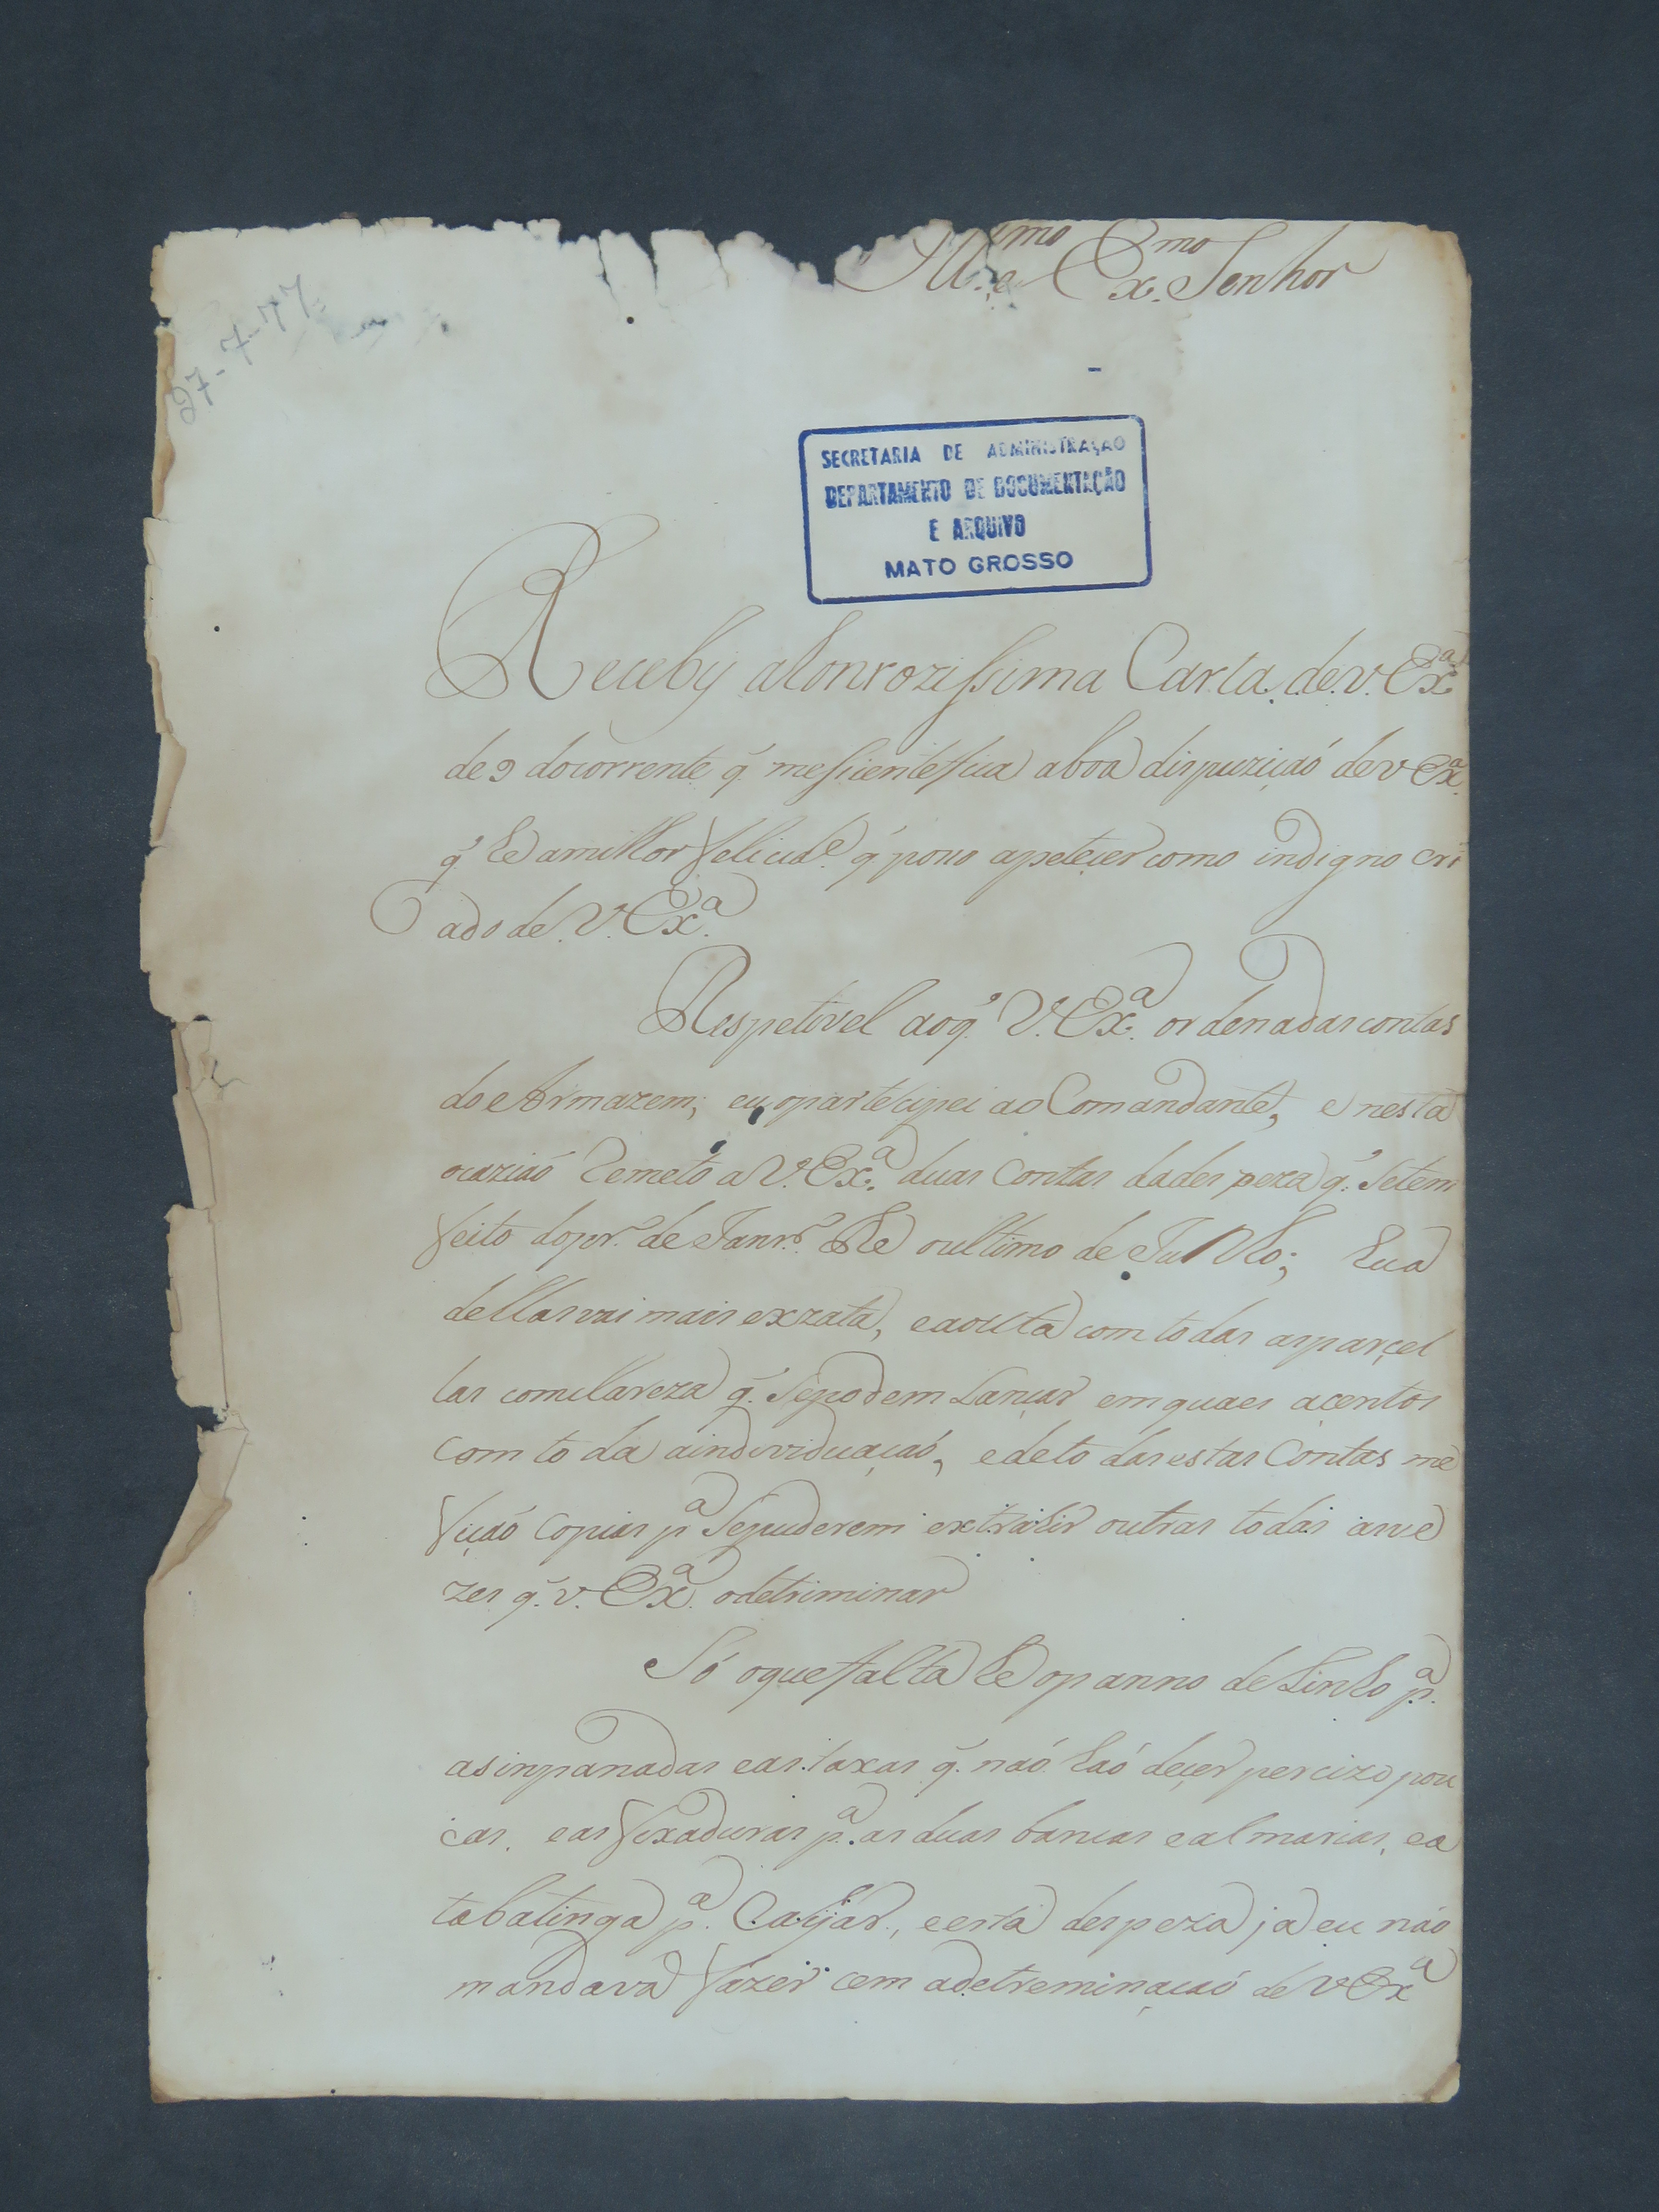 Ill.mo e Ex.mo Senhor
27-7-77
SECRETARIA DE ADMINISTRAÇÃO
DEPARTAMENTO DE DOCUMENTAÇÃO
E ARQUIVO
MATO GROSSO
Receby ahonrozissima Carta de V. Ex.ª
de 9 docorrente q̃ mesientefica aboa dispuziçaó de V Ex.ª
q̃ he amilhor felicid.e q̃ poso apeteçer como indigno cri
ado de V. Ex.ª
Respetivel aoq̃ V. Ex.ª ordenadascontas
do Armazem; eu opartecipei ao Comandante, e nesta
ocaziaó Remeto a V. Ex.ª duas Contas dadespeza q̃ Setem
feito dopr.º de Janr.º the oultimo de Julho; huã
dellasvai mais exzata, eaoutã com todas asparçel
las comclareza q̃ Sepodem Lançar em quaes açentos
com toda aindividuaçaó, edetodasestas Contas me
ficaó Copias p.ª Sepuderem extrahir outras todas asve
zes q̃ V. Ex.ª odetriminar
Só oquefalta he opanno de Linho p.ª
asinpanadas eas taxas q̃ naó haó deçer percizo pou
cas, eas fixaduras p.ª as duas bancas ealmarias, ea
tabatinga p.ª Cayar, eesta despeza ja eu não
mandava fazer cem adetreminaçaó de V Ex.ª